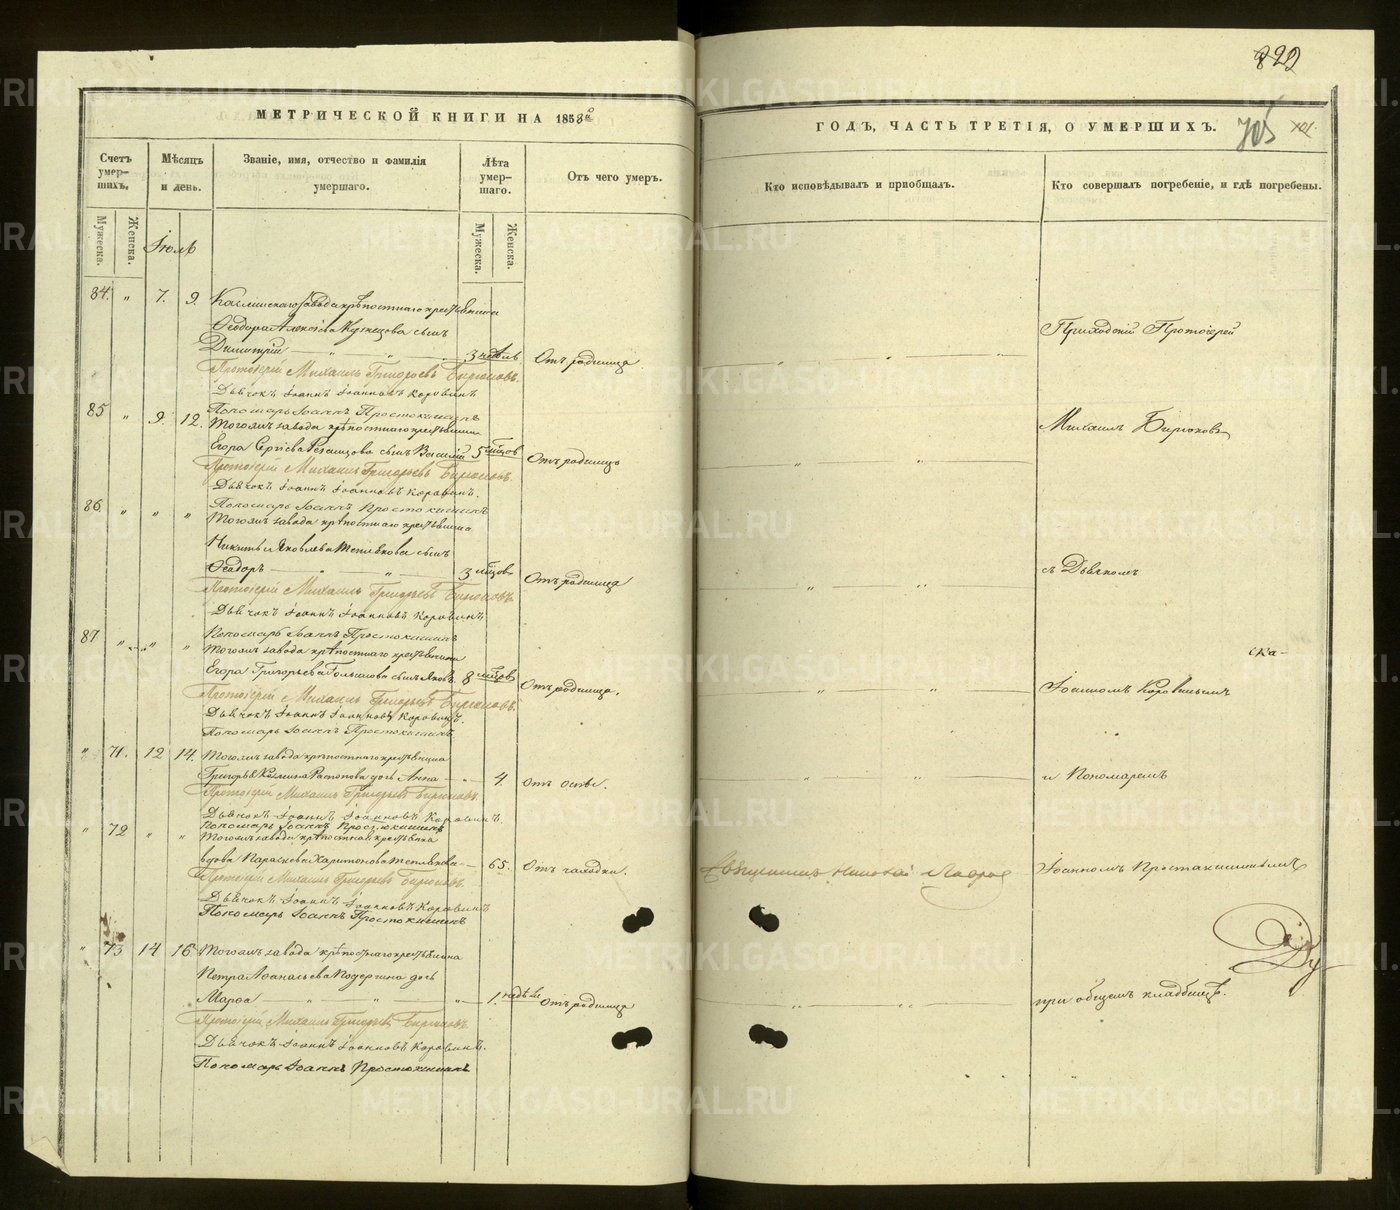 822
МЕТРИЧЕСКОЙ КНИГИ НА 1858й
ГОДЪ, ЧАСТЬ ТРЕТІЯ, О УМЕРШИХЪ.
705
101.
Счетъ умер-
шихъ.
Мужеска.
Женска.
Мѣсяцъ
и день.
Званіе, имя, отчество и фамилія
умершаго.
Лѣта
умер-
шаго.
Мужеска.
Женска.
Отъ чего умеръ.
Кто исповѣдывалъ и пріобщалъ.
Кто совершалъ погребеніе, и гдѣ погребены.
Іюль
84. " 7. 9. Каслинскаго завода крѣпостнаго крестьянина
Ѳеодора Алексіева Кузнецова сынъ
Димитрій 3 недѣль Отъ родимца
Протоіерей Михаилъ Григорьевъ Бирюковъ.
Дьячокъ Іоаннъ Іоанновъ Коровинъ
Пономарь Іоаннъ Простокишинъ
85 " 9. 12. Тогожъ завода крѣпостнаго крестьянина
Егора Сергіева сынъ Василій 5 мѣсцов Отъ родимца
Протоіерей Михаилъ Григорьевъ Бирюковъ.
Дьячокъ Іоаннъ Іоанновъ Коровинъ.
Пономарь Іоаннъ Простокишинъ
86 " " " Тогожъ завода крѣпостнаго крестьянина
Никиты Яковлева Теплякова сынъ
Ѳеодоръ 3 мѣсцов Отъ родимца
Протоіерей Михаилъ Григорьевъ Бирюковъ.
Дьячокъ Іоаннъ Іоанновъ Коровинъ
Пономарь Іоаннъ Простокишинъ
87 " " " Тогожъ завода крѣпостнаго крестьянина
Егора Григорьева сынъ Яковъ 8 мѣсцов Отъ родимца.
Протоіерей Михаилъ Григорьевъ Бирюковъ.
Дьячокъ Іоаннъ Іоанновъ Коровинъ.
Пономарь Іоаннъ Простокишинъ
" 71. 12 14. Тогожъ завода крѣпостнаго крестьянина
Григорья Козмина дочь Анна " 4. Отъ оспы.
Протоіерей Михаилъ Григорьевъ Бирюковъ.
Дьячокъ Іоаннъ Іоанновъ Коровинъ.
Пономарь Іоаннъ Простокишинъ
" 72 " " Тогожъ завода крѣпостная крестьянка
вдова Параскева Харитонова Теплякова 65. Отъ чахотки.
Протоіерей Михаилъ Григорьевъ Бирюковъ.
Дьячокъ Іоаннъ Іоанновъ Коровинъ
Пономарь Іоаннъ Простокишинъ
" 73 14 16 Тогожъ завода крѣпостнаго крестьянина
Петра Аѳанасьева дочь
Марѳа " 1. недѣли Отъ родимца
Протоіерей Михаилъ Григорьевъ Бирюковъ.
Дьячокъ Іоаннъ Іоанновъ Коровинъ.
Пономарь Іоаннъ Простокишинъ
Священникъ Николай
Приходскій Протоіерей
Михаилъ Бирюковъ
съ Дьячкомъ
ска-
Іоанномъ Коровинымъ
и Пономаремъ
Іоанномъ Простокишинымъ
при общемъ кладбищѣ.
METRIKI.GASO-URAL.RU